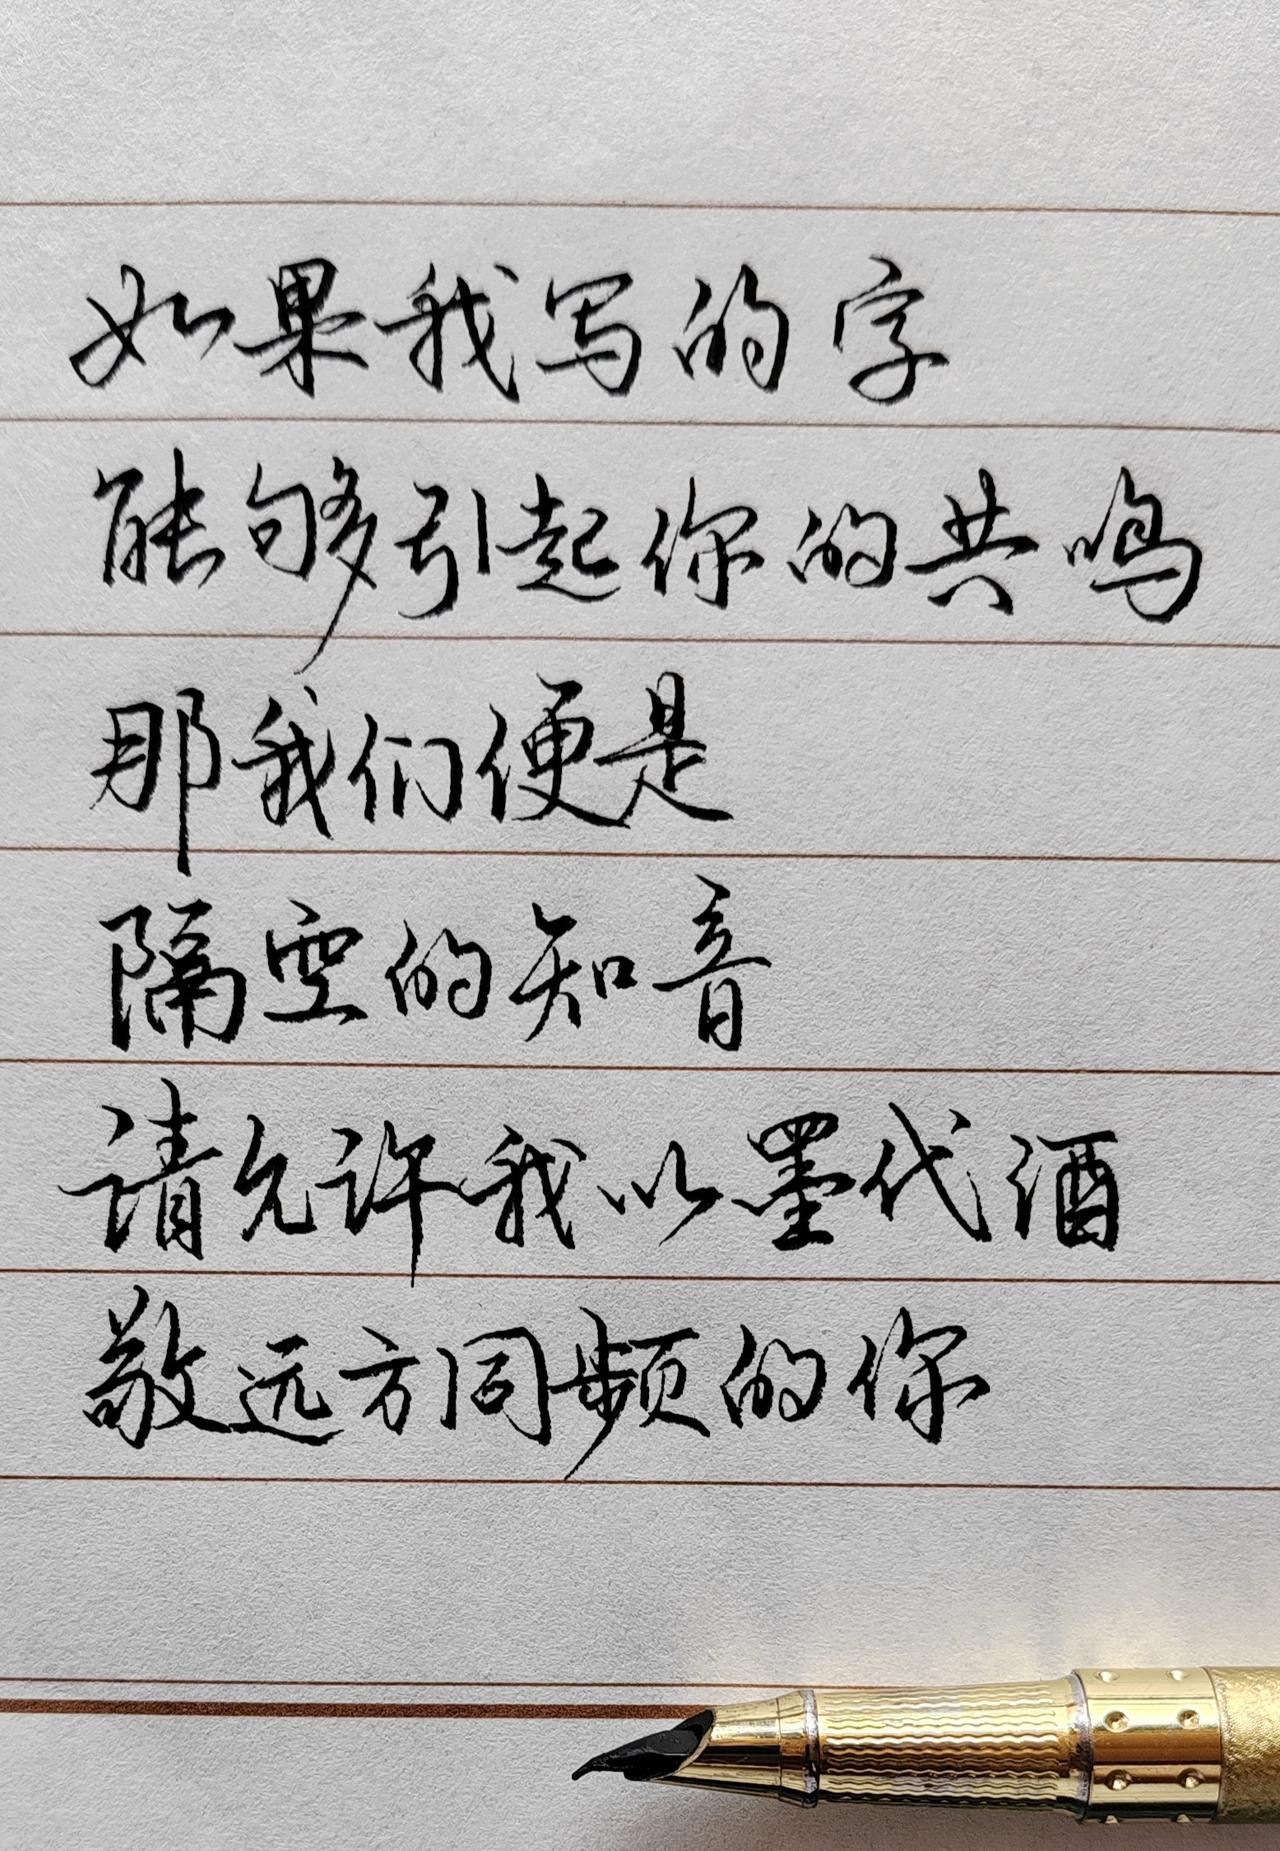 如果我写的字
能够引起你的共鸣
那我们便是
隔空的知音
请允许我以墨代酒
敬远方同频的你